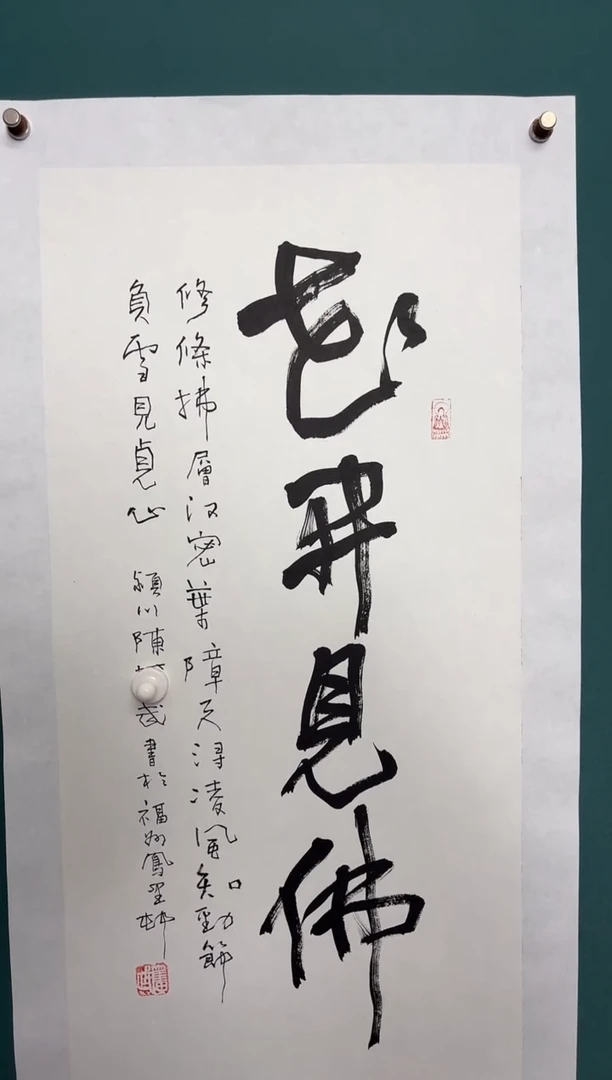 花开見佛
修條拂層汉密葉障天潯凌風知勁節
負雪見貞心 潁川陳 武書於福州鳳